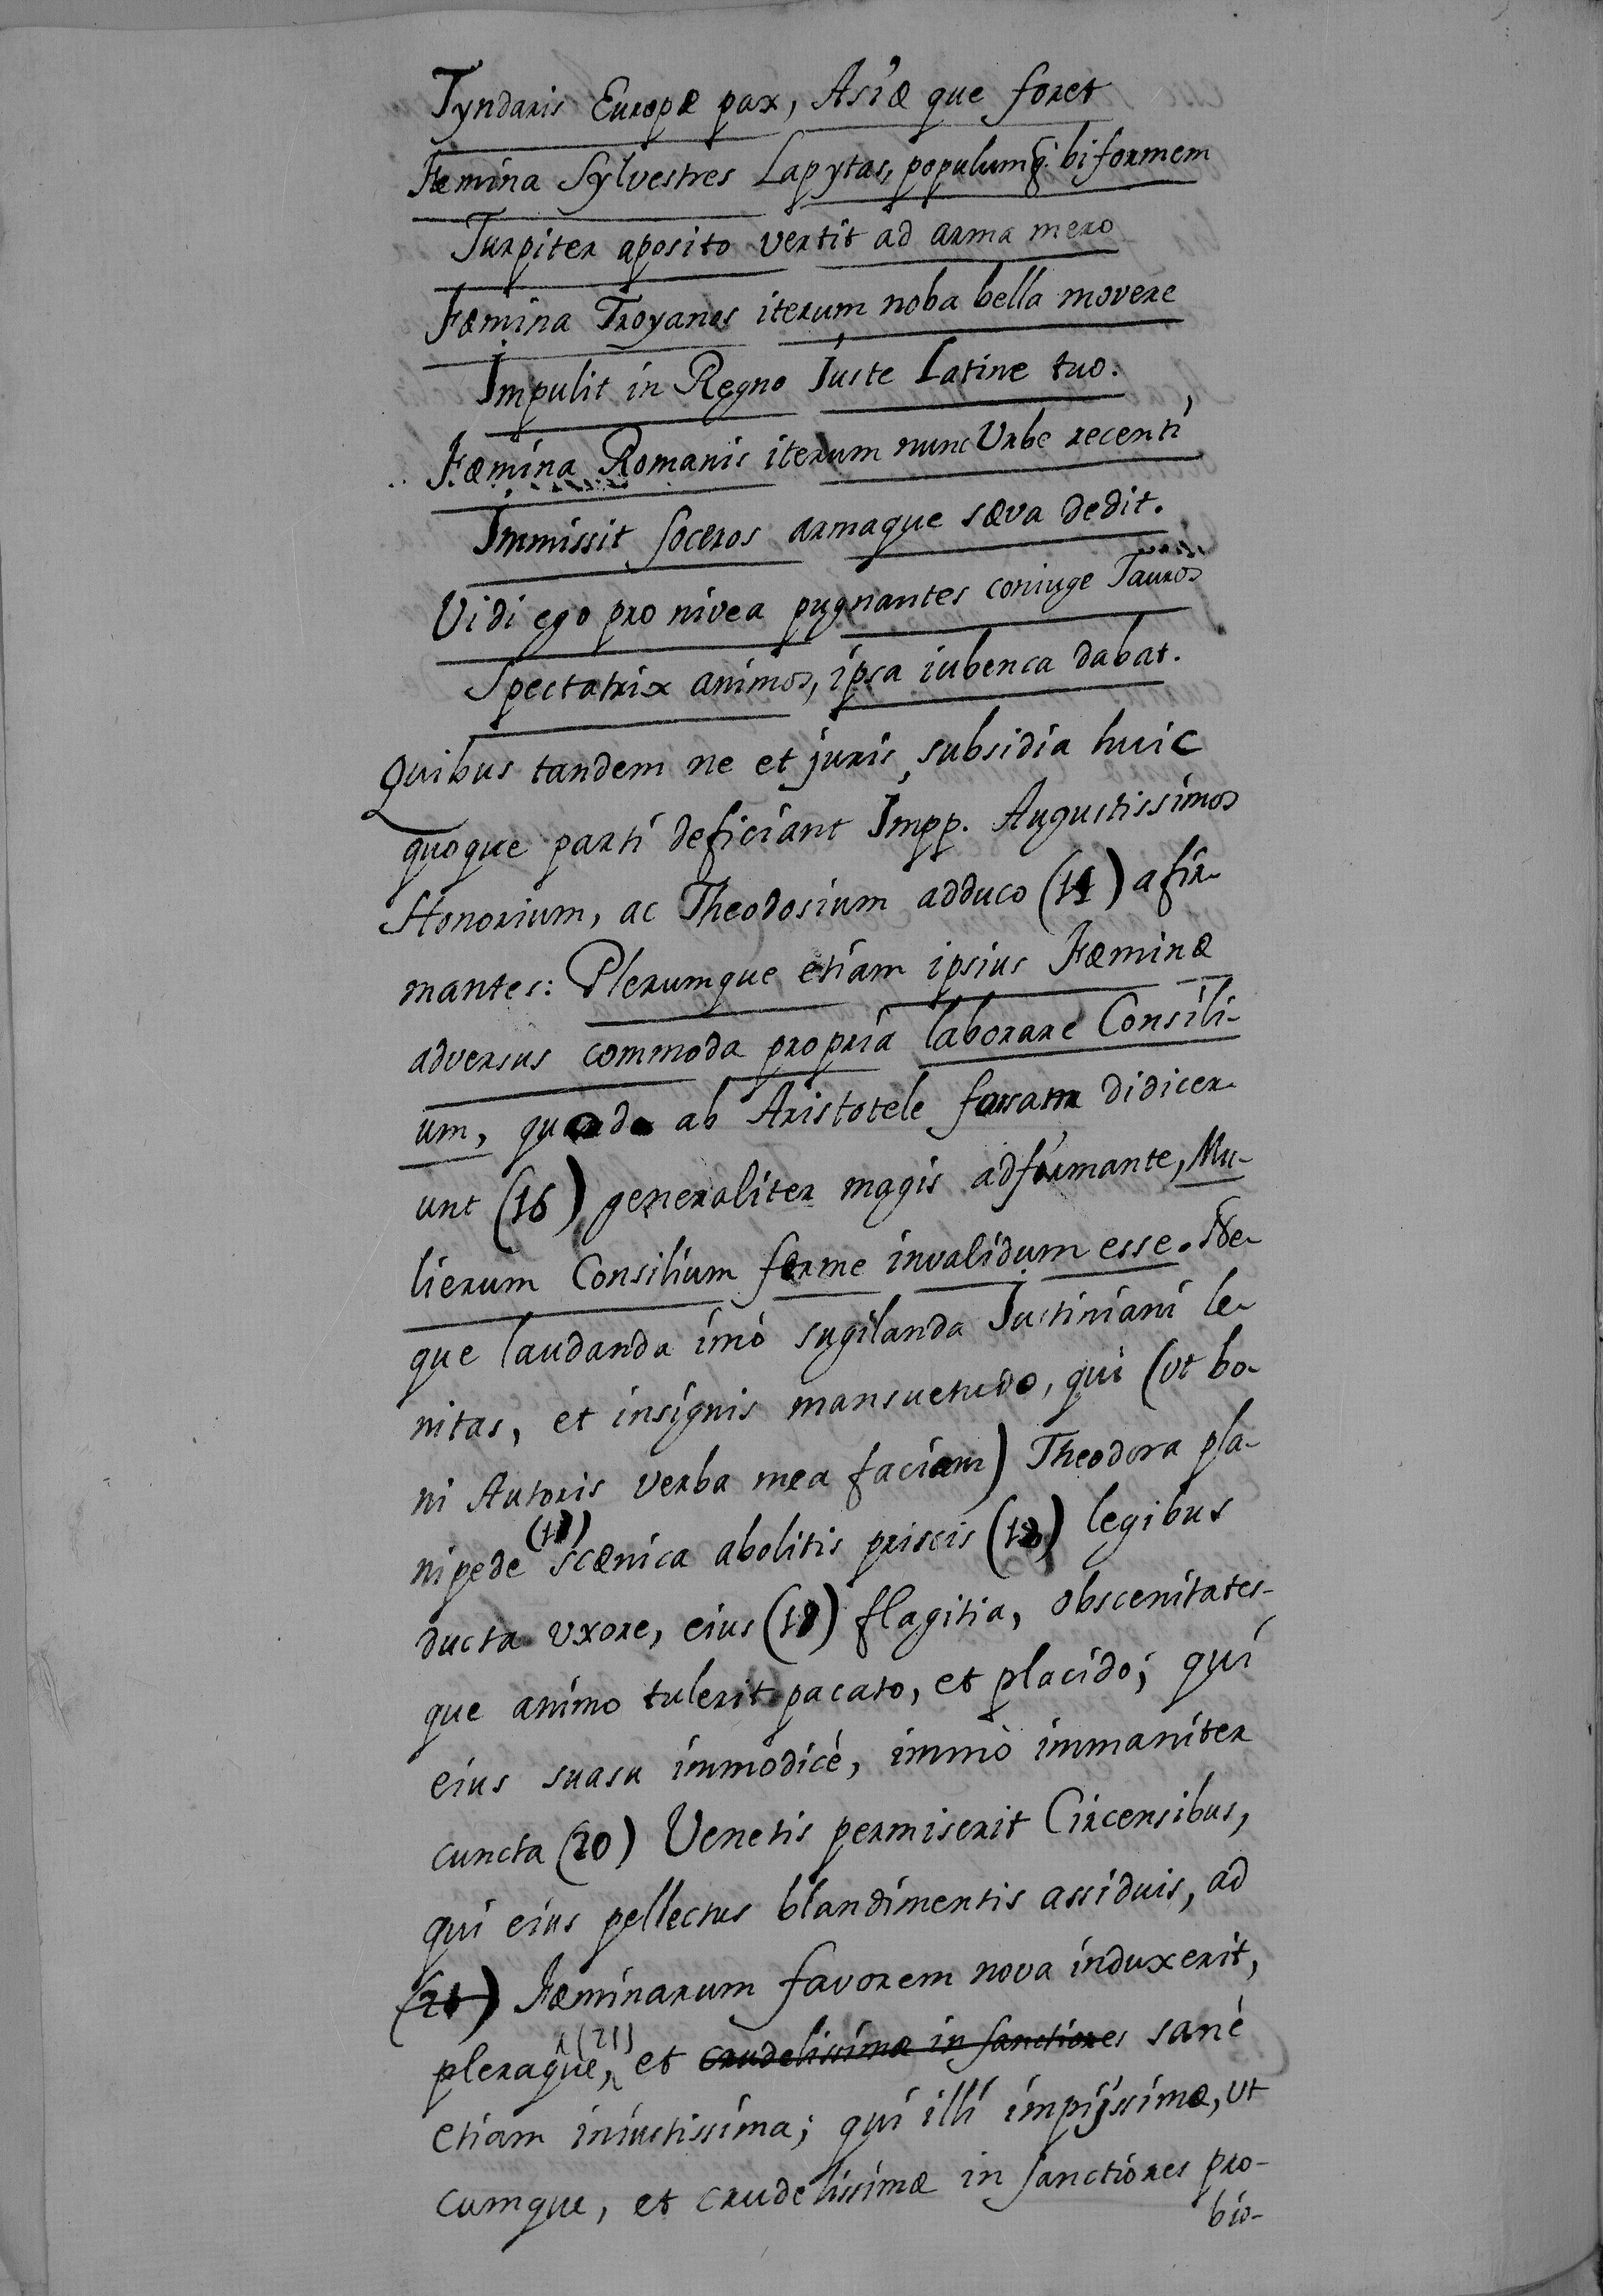 Tyndaris Europæ pax, Asiæ que foret
Fæmina Sylvestres Lapytas, populumq. biformem
Turpiter aposito vertit ad arma mero
Fæmina Troyanos iterum noba bella movere
Impulit in Regno Iuste Latine tuo.
Fæmina Romanis iterum nunc Urbe recenti
Immissit soceros armaque sæva dedit.
Vidi ego pro nivea pugnantes coniuge Tauros
Spectatrix animos, ipsa iubenca dabat.
Quibus tandem ne et juris, subsidia huic
quoque parti deficiant Impp. Augustissimos
Honorium, ac Theodosium adduco (14) afir-
mantes: Plerumque etiam ipsius Fæminæ
adversus commoda propria laborare Consili-
um, ab Aristotele didicer-
unt (16) generaliter magis adfirmante, Mu-
lierum Consilium ferme invalidum esse. Ne-
que laudanda imò sugilanda Iustiniani le-
nitas, et insignis mansuetudo, qui (ut bo-
ni Autoris verba mea faciam) Theodora pla-
nipede scænica abolitis priscis legibus
ducta uxore, eius (19) flagitia, obscenitates-
que animo tulerit pacato, et placido; qui
eius suasu immodicè, immò immaniter
cuncta (20) Venetis permiserit Circensibus,
qui eius pellectus blandimentis assiduis, ad
(21) Fæminarum favorem nova induxerit,
pleraque, (21) et crudelissimæ in sanctiores sanè
etiam iniustissima; qui illi impijssimæ, ut
cumque, et crudelissimæ in sanctiores pro-
bio-